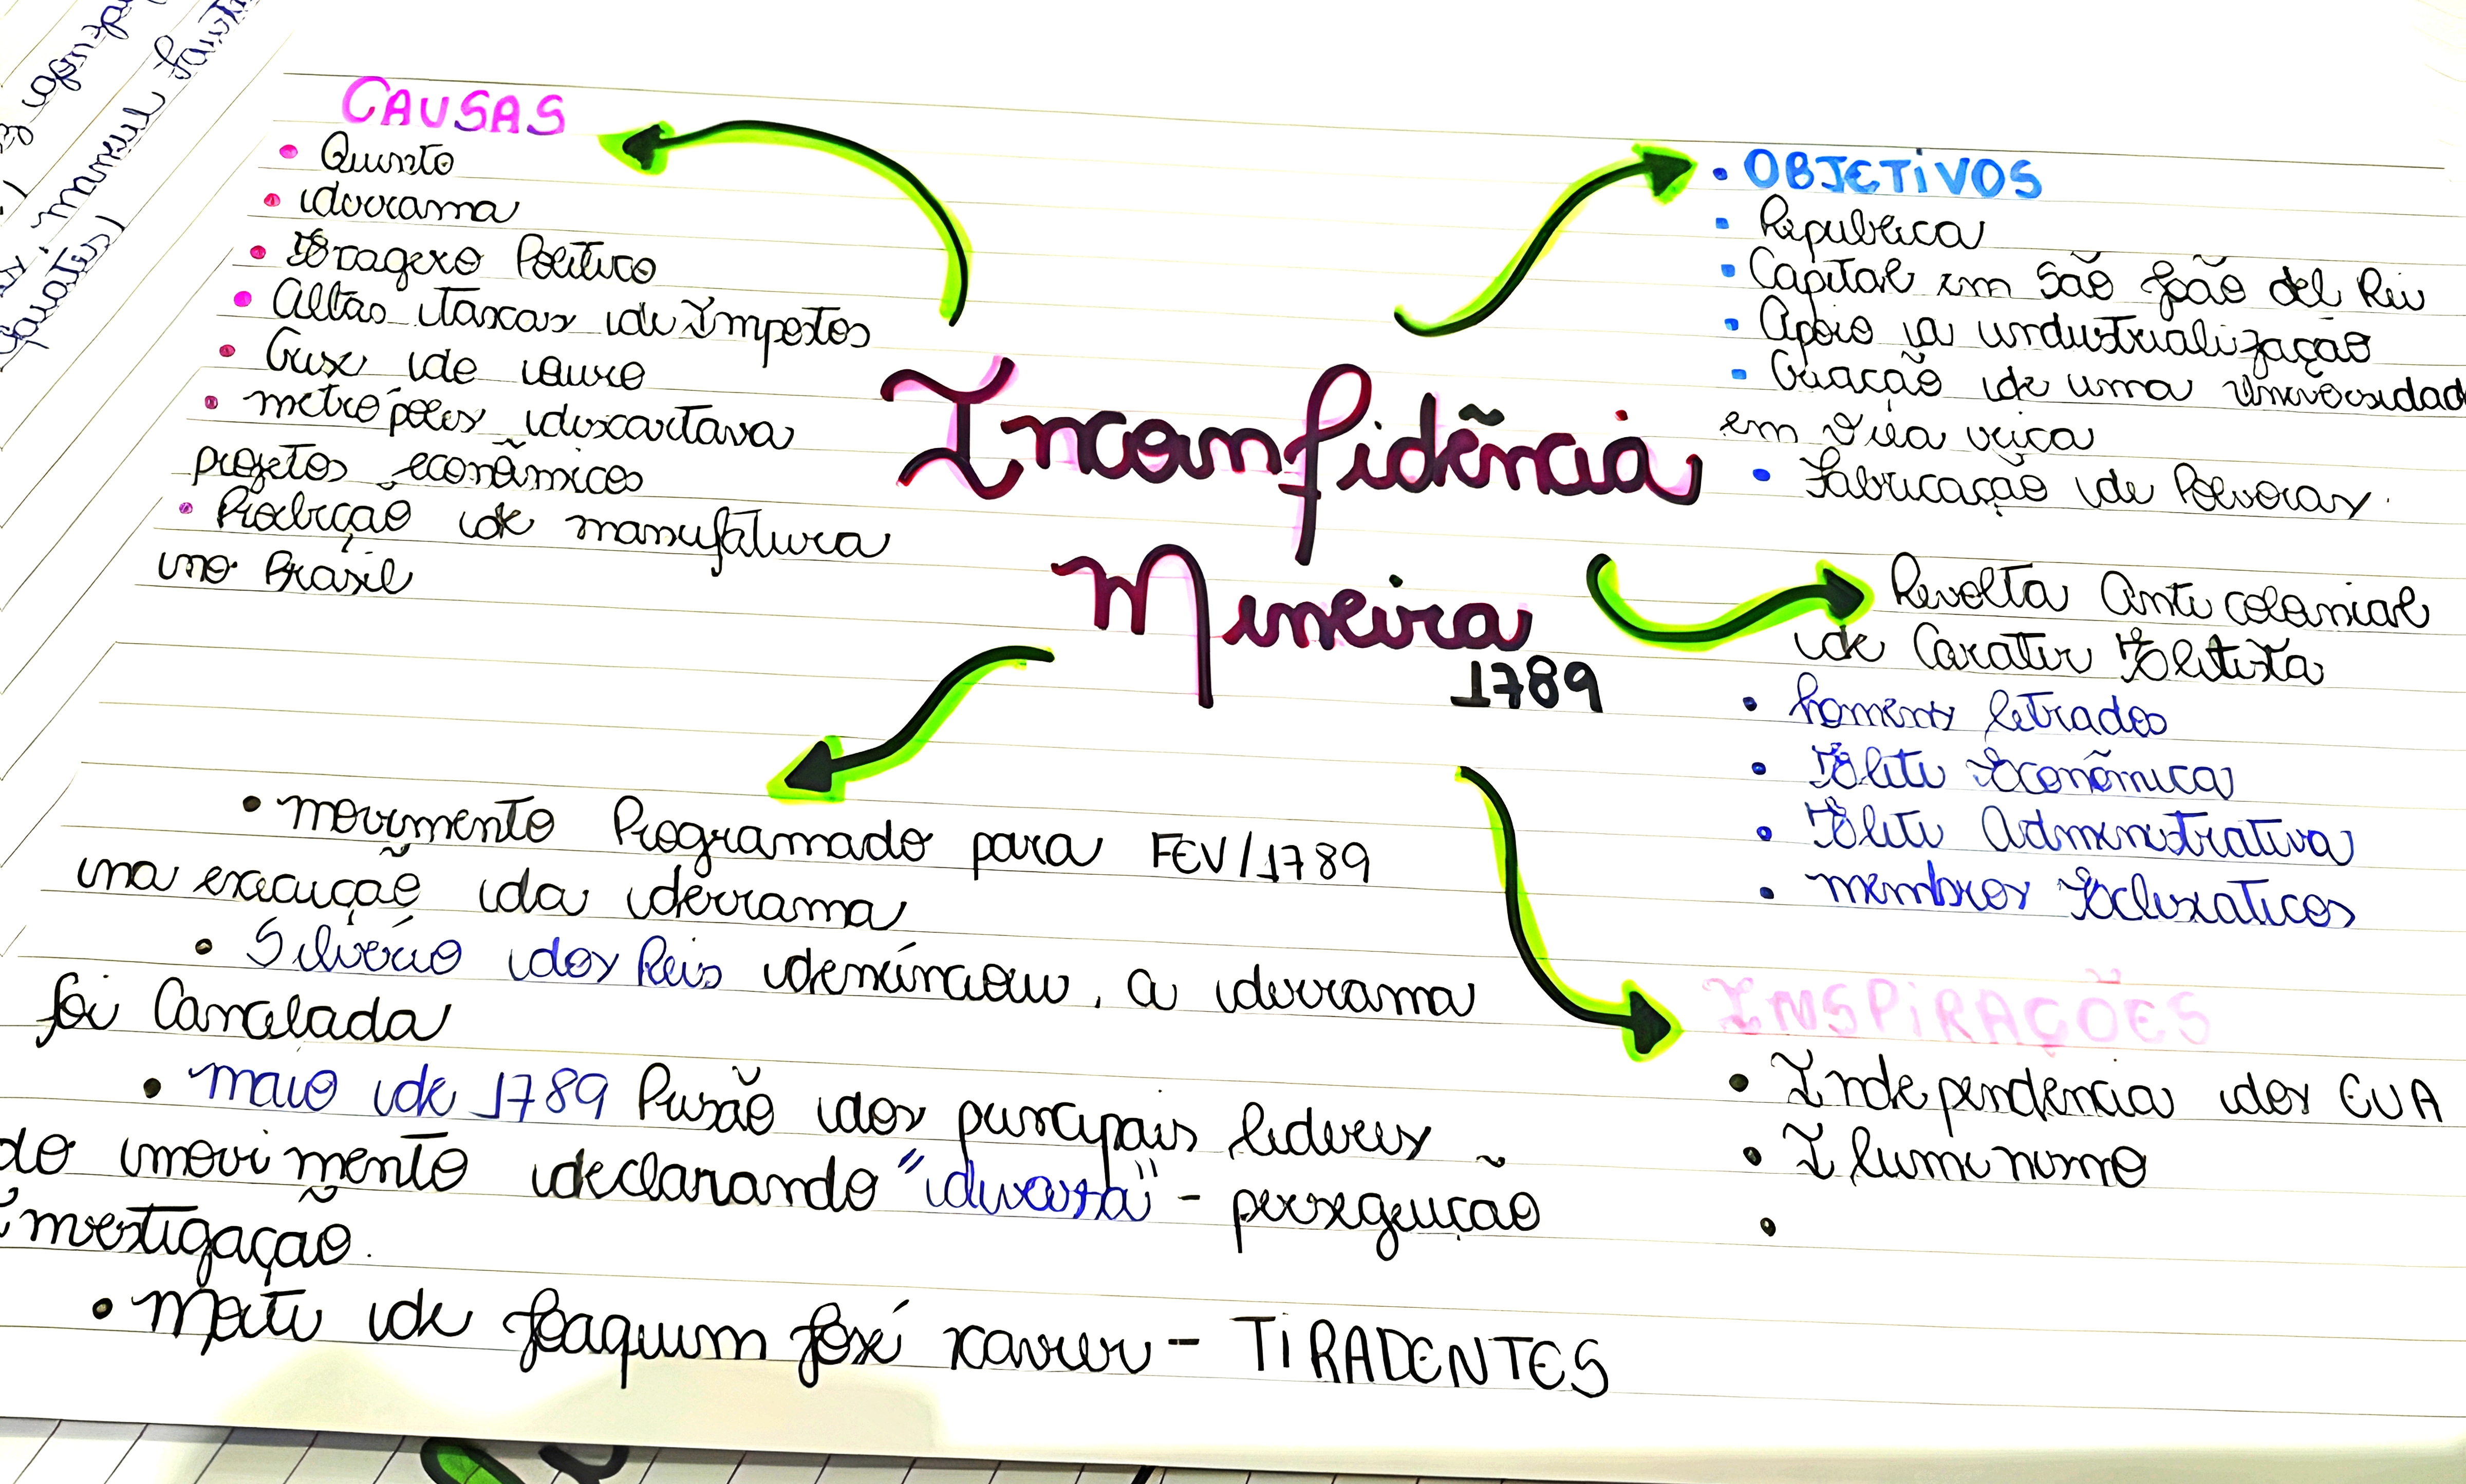 CAUSAS
• Quinto
• derrama
• Arrocho Político
• Altas taxas de Impostos
• Crise do ouro
• metrópoles descartava
projetos econômicos
• Proibição de manufatura
no Brasil
Inconfidência
Mineira
1789
• OBJETIVOS
• Republica
• Capital em São João del Rei
• Apoio a industrialização
• Criação de uma Universidad
em Vila rica
• Fabricação de Polvoras.
Revolta Anti colonial
de Carater Elitista
• homens letrados
• Elite Econômica
• Elite Administrativa
• membros Eclesiaticos
INSPIRAÇÕES
• Independência dos EUA
• Iluminismo
•
• movimento Programado para FEV/1789
na execução da derrama
• Silvério dos Reis denúnciou, a derrama
foi Cancelada
• maio de 1789 Prisão dos principais lideres
do movimento declarando "devassa" - perseguição
investigação.
• Morte de Joaquim José xavier - TIRADENTES